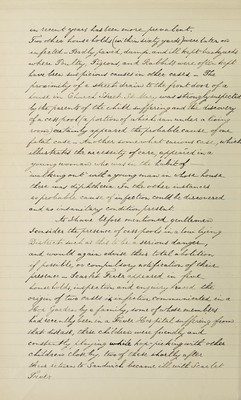 in recent years has been more prevalent.
Two other houses holds (within sixty yards) were later on
infected – Badly paved, damp and ill kept backyards
where Poultry, Pigeons and Rabbits were often kept
have been suspicious causes in other cases – The
proximity of a street drain to the front door of a
house in Church Street St. Mary was strongly suspected
by the parents of the child suffering and the discovery
of a cesspool (a portion of which ran under a living
room) certainly appeared the probable cause of one
fatal case – Another somewhat curious case, which
illustrates the necessity of care, appeared in a
young woman who was in the habit of
walking out with a young man in whose house
there was diphtheria. In the other instances
no probable cause of infection could be discovered
and no insanitary condition found.
As I have before mentioned gentlemen I
consider the presence of cesspools in a low lying
District such as this to be a serious danger,
and would again advise their total abolition
if possible, or compulsory notification of their
presence – Scarlet Fever appeared in five
households, inspection and enquiry traced the
origin of two cases to infection communicated in a
Garden by a family, some of whose members
had recently been in a Fever Hospital suffering from
that disease, these children were friendly and
constantly playing with other
children close by, two of these shortly after
their return to Sandwich became ill with Scarlet
Fever.